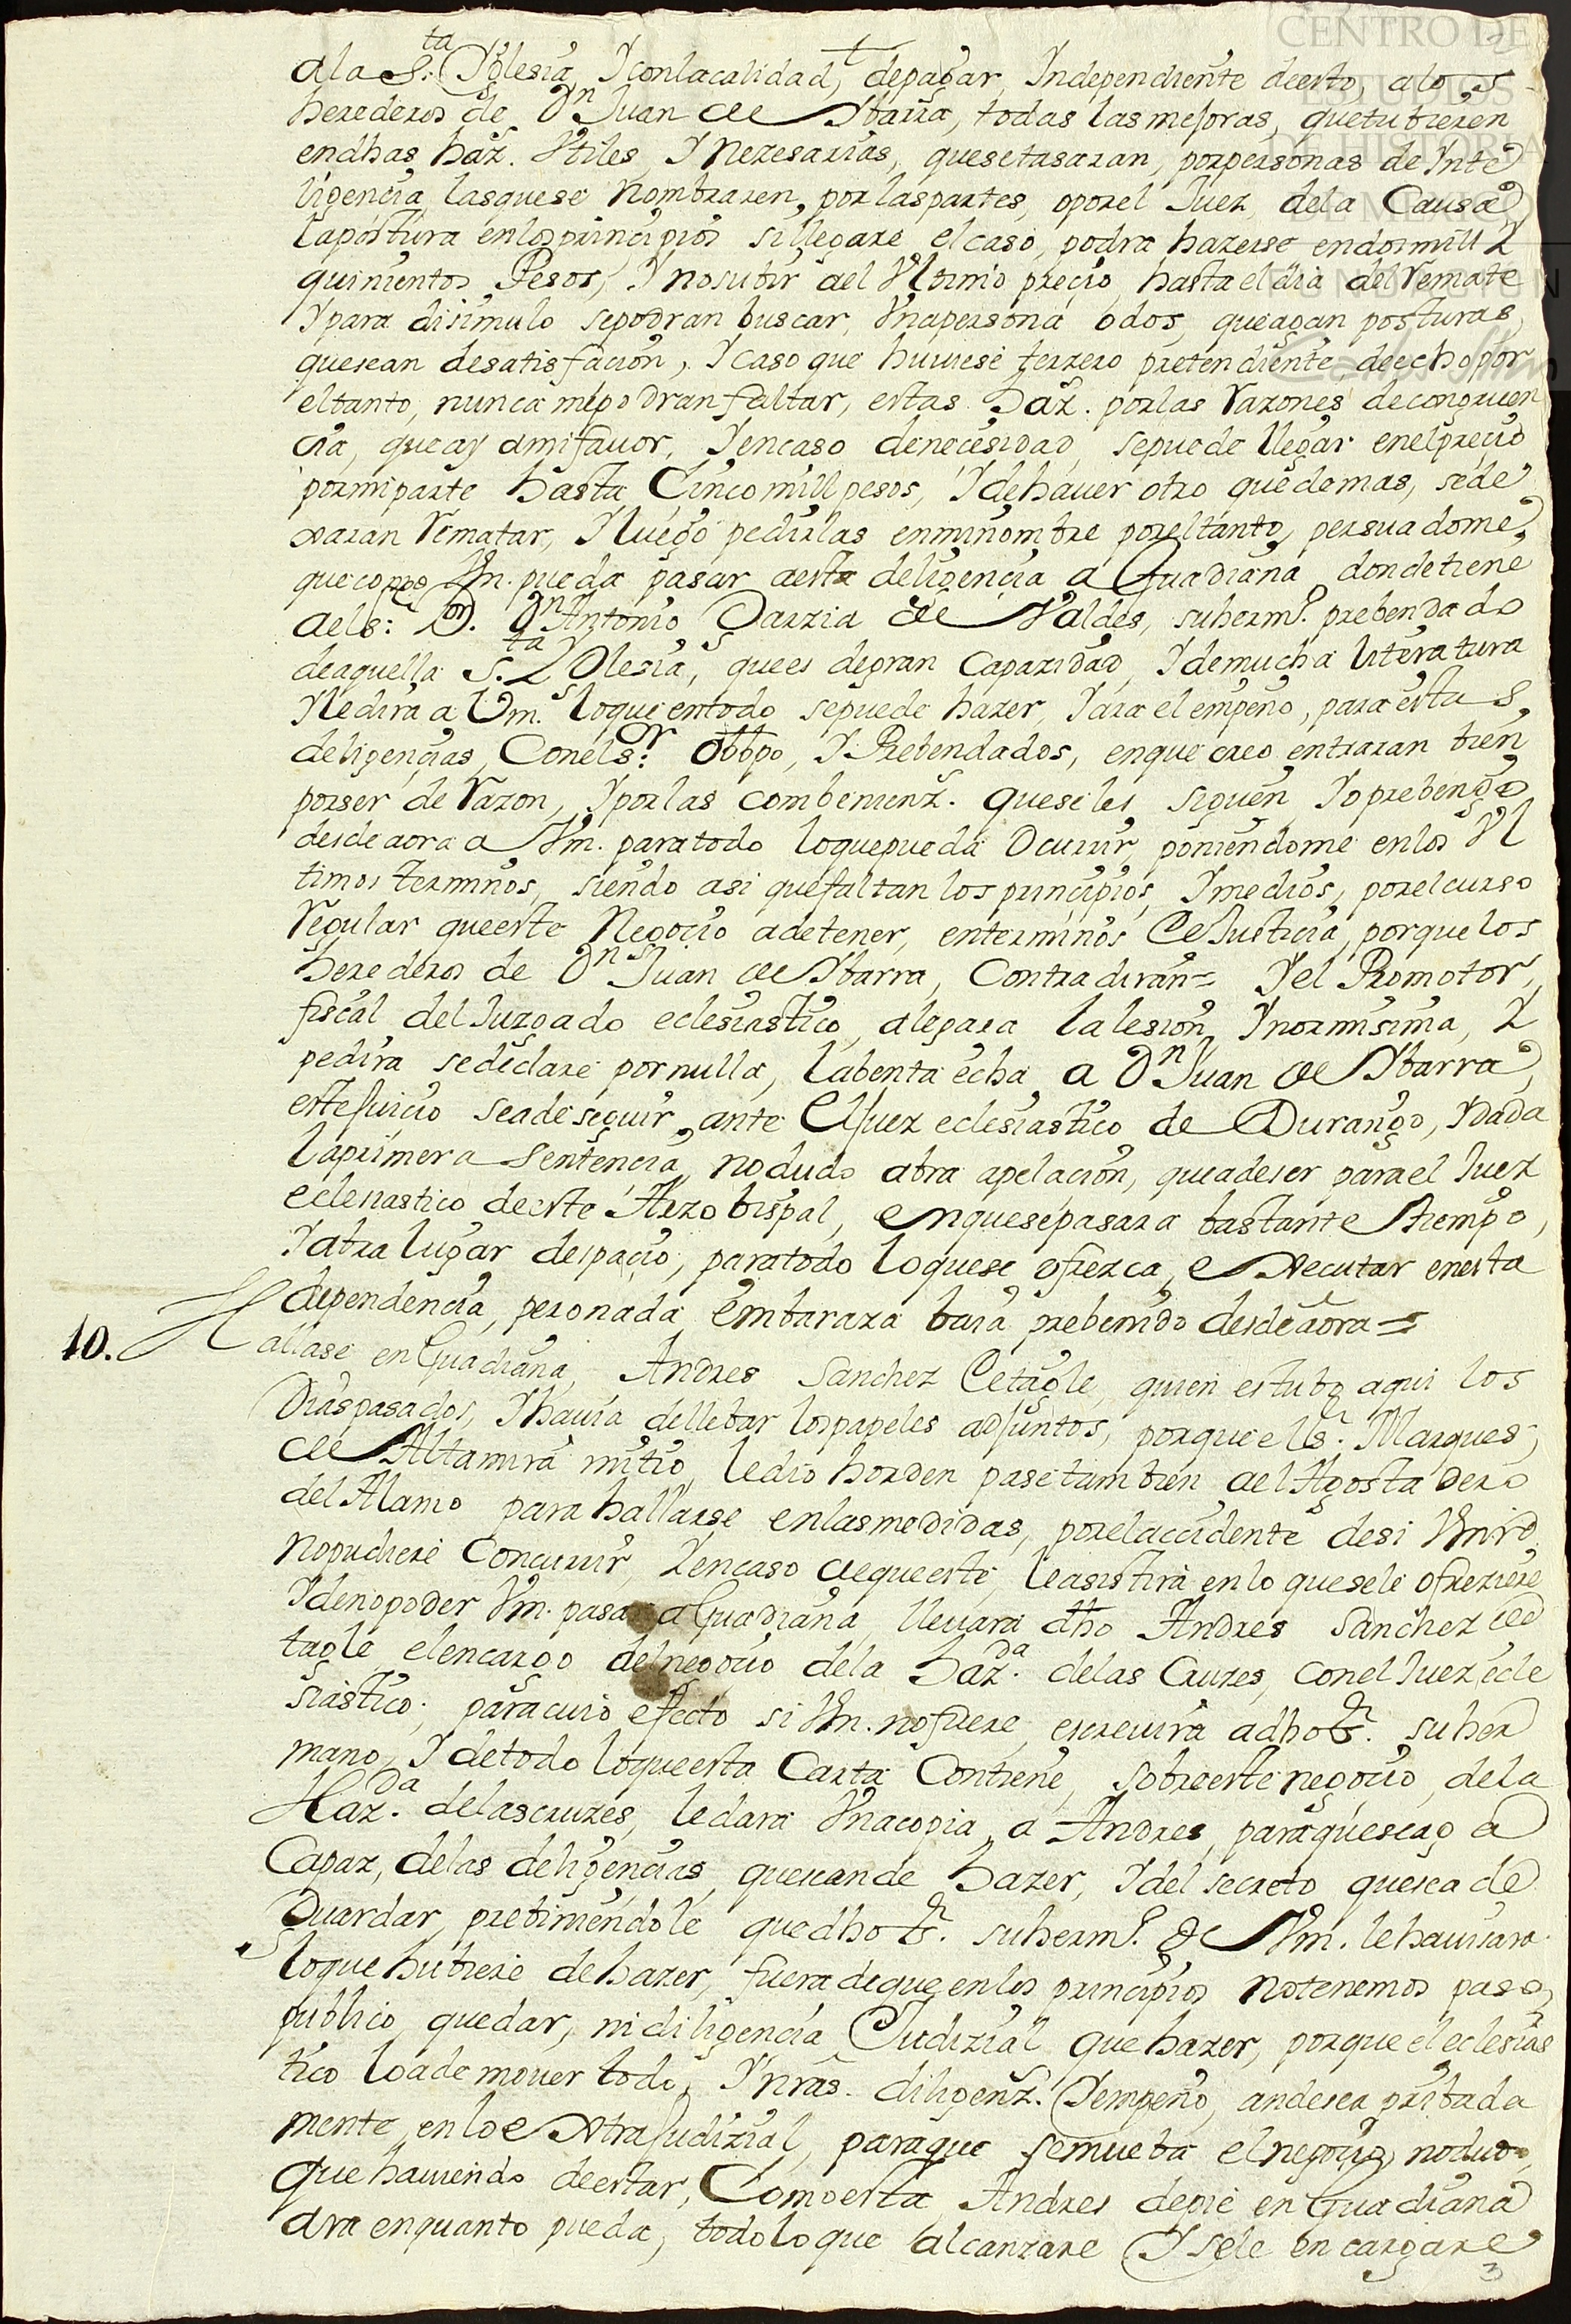 CENTRO DE
ESTUDIOS
DE HISTORIA
DE MÉXICO
FUNDACIÓN
Carlos Slim
ala S.ta Yglesia, Y conlacalidad, depagar, Independiente deesto, alos
herederos de Dn Juan de Ybarra, todas lasmejoras, quetubieren
endhas haz.s Vtiles, Y Nezesarias, quesetasaran, porpersonas de Ynte
ligencia, lasquese Nombraren, por laspartes, oporel Juez, dela Causa,
lapostura enlosprincipios si llegare el caso, podra hazerse endosmill Y
quinientos Pesos, Y nosubir del Vltimo precio, hasta el dia del Remate
Y para disimulo sepodran buscar, Vnapersona odos, queagan posturas,
quesean desatisfacion, Y caso que huuiese terzero pretendiente, deecho por
eltanto, nunca mepodran faltar, estas Haz.s porlas Razones decongruen
cia, queay amifauor, Y encaso denecesidad, sepuede llegar enelprecio
pormiparte hasta Cincomill pesos, Y dehauer otro quedemas, sede
xaran Rematar, Y luego pedirlas enminombre poreltanto, persuadome,
quecomo Vm. pueda pasar aesta deligencia a Guadiana, dondetiene
aels.r D.or Dn Antonio Garzia de Valdes, suherm.o prebendado
deaquella S.ta Yglesia, quees degran Capazidad, Y demucha literatura
Y ledira a Vm. loque entodo sepuede hazer, Y ara el empeño, para estas
deligencias, Conels.or obbpo, Y Prebendados, enque creo entraran bien
porser de Razon, Y porlas combenienz.s queseles siguen, Yo prebengo
desdeaora a Vm. paratodo loquepueda Ocurrir, poniendome enlos Vl
timos terminos, siendo asi quefaltan los principios, Y medios, porelcurso
Regular queeste Negocio adetener, enterminos de Justicia, porquelos
herederos de Dn Juan de Ybarra, Contradiran= Y el Promotor,
fiscal del Juzgado eclesiastico, alegara lalesion, Ynormisima, Y
pedira sedeclare pornulla, labenta echa a Dn Juan de Ybarra,
estejuicio seadeseguir, ante el Juez eclesiastico de Durango, Y dada
laprimera sentencia, nodudo abra apelacion, queadeser parael Juez
eclesiastico deeste Arzobispal, enquesepasara bastante tiempo,
Y abra lugar despacio, paratodo loquese ofrezca, executar enesta
dependencia, peronada embaraza baia prebenido desdeaora=
10. Hallase enGuadiana, Andres Sanchez de tagle, quien estubo aqui los
Diaspasados, Y hauia dellebar lospapeles adjuntos, porque el s.r Marques,
de Altamira mitio, ledio horden pasetambien ael Agostadero
del Alamo para hallarse enlasmedidas, porelaccidente desi Vmrd
nopudiere Concurrir, Y encaso dequeeste, leasistira en lo quesele ofreziere
Y denopoder Vm. pasar a Guadiana, lleuara dho Andres Sanchez de
tagle elencargo delnegocio dela haz.da delas Cruzes, conel Juez ecle
siastico; paracuio efecto si Vm. nofuere, escreuira adho s.r suher
mano, Y detodo loqueesta Carta Contiene, sobreestenegocio, dela
Haz.da delascruzes, ledara Vnacopia, a Andres, paraquesehaga
Capaz, delas deligencias, quesean de hazer, Y del secreto quesea de
Guardar, prebiniendole quedho s.r suherm.o de Vm. lehauisara
loque hubiere dehazer, fuera deque enlos principios notenemos paso,
publico, quedar, nidiligencia Judizial que hazer, porque eleclesias
tico loademouer todo, Y nras diligenz.s Y empeño, andeser pribada
mente, enloextrajudizial, paraque semueba elnegocio, nodudo,
quehauiendo deestar, Comoesta Andres depie en Guadiana
ara enquanto pueda, todoloque alcanzare Y sele encargare
3